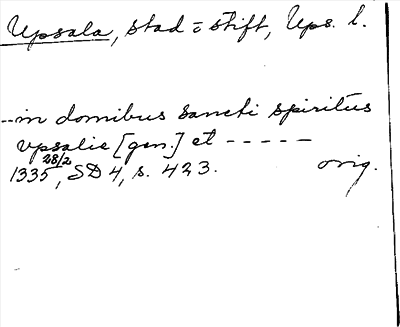 Upsala, stad o stift, Ups. l.
--in domibus sancti spiritus
vpsalie [gen.] et -----
1335 28/2, SD 4, s. 423. orig.